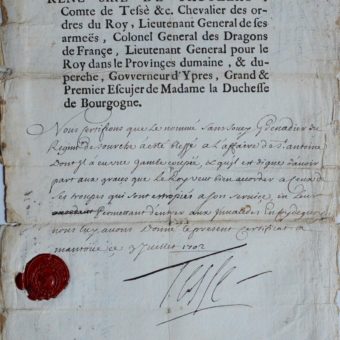 RENÉ SIRE DE FROULLAY
Comte de Tessè &c. Chevalier des or-
dres du Roy, Lieutenant General de ses
armeës, Colonel General des Dragons
de Françe, Lieutenant General pour le
Roy dans le Provinçes dumaine, & du-
perche, Govverneur d'Ypres, Grand &
Premier Escujer de Madame la Duchesse
de Bourgogne.
Nous certifions que le nommé Sans Soucy Grenadier du
Regimt de Sourche a esté blessé a l'affaire de St antoine
Dont il a eu une jambe coupée, et quil est digne davoir
part aux graces que le Roy veut bien accorder a ceux de
ses troupes qui sont estropiés a son service, en leur
permettant dentrer aux Invalides En foy de quoy
nous luy avons donné le present certificat a
mantoüe ce 3 Juillet 1702
Tessé